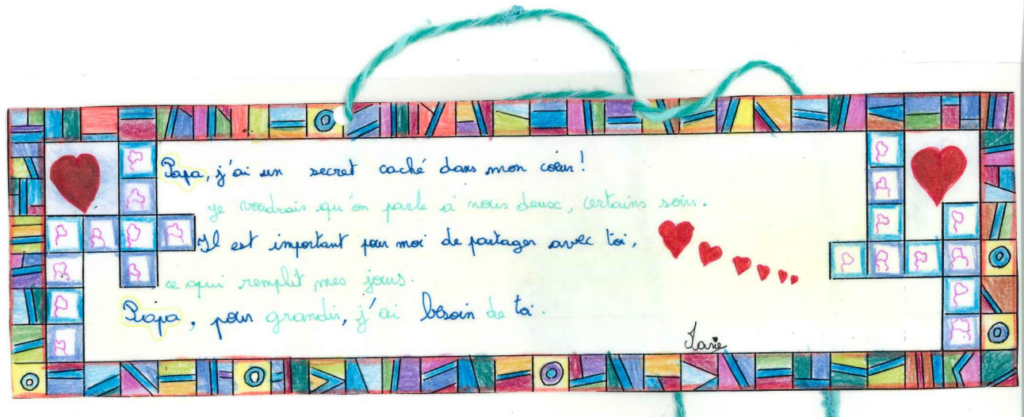 Papa, j'ai un secret caché dans mon cœur !
Je voudrais qu'on parle à nous deux, certains soirs.
Il est important pour moi de partager avec toi,
ce qui remplit mes jours.
Papa, pour grandir, j'ai besoin de toi.